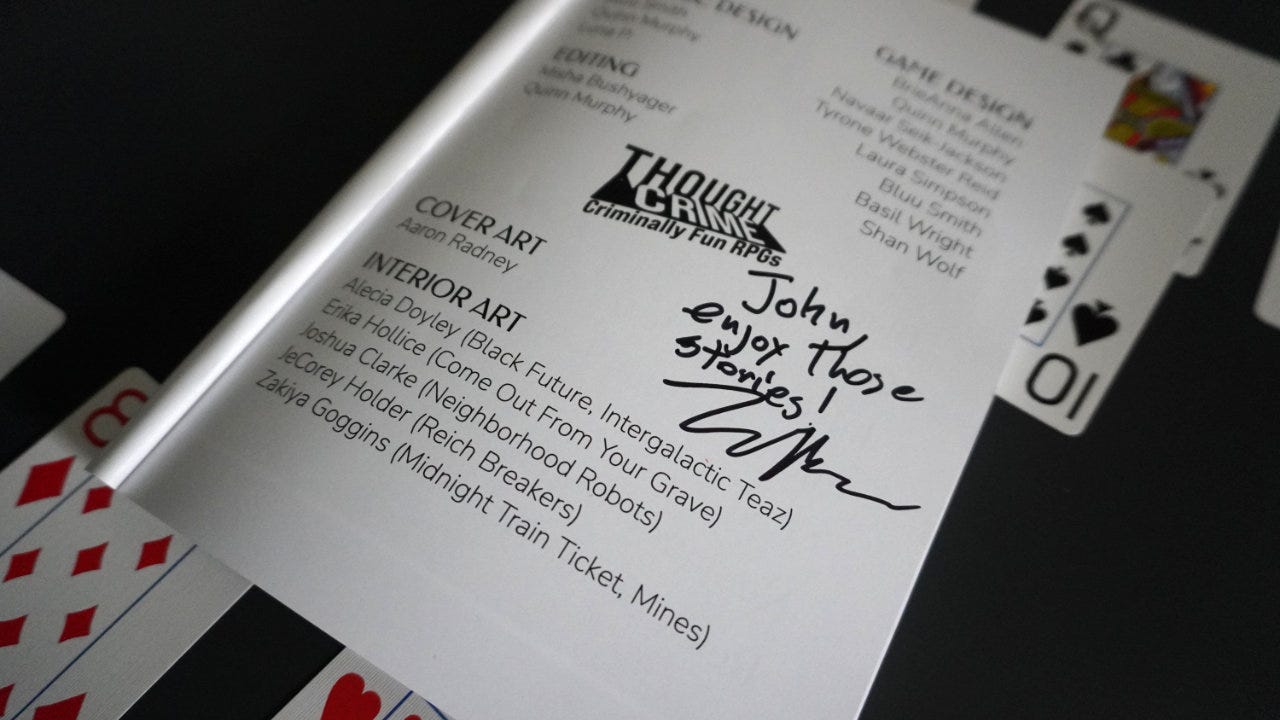 DESIGN
Smith
Quinn Murphy
EDITING
Misha Bushyager
Quinn Murphy
GAME DESIGN
BrieAnna Allen
Quinn Murphy
Navaar Seik-Jackson
Tyrone Webster Reid
Laura Simpson
Bluu Smith
Basil Wright
Shan Wolf
THOUGHT
CRIME
Criminally Fun RPGs
COVER ART
Aaron Radney
John,
enjoy those
stories!
INTERIOR ART
Alecia Doyley (Black Future, Intergalactic Teaz)
Erika Hollice (Come Out From Your Grave)
Joshua Clarke (Neighborhood Robots)
JeCorey Holder (Reich Breakers)
Zakiya Goggins (Midnight Train Ticket, Mines)
Q
10
8